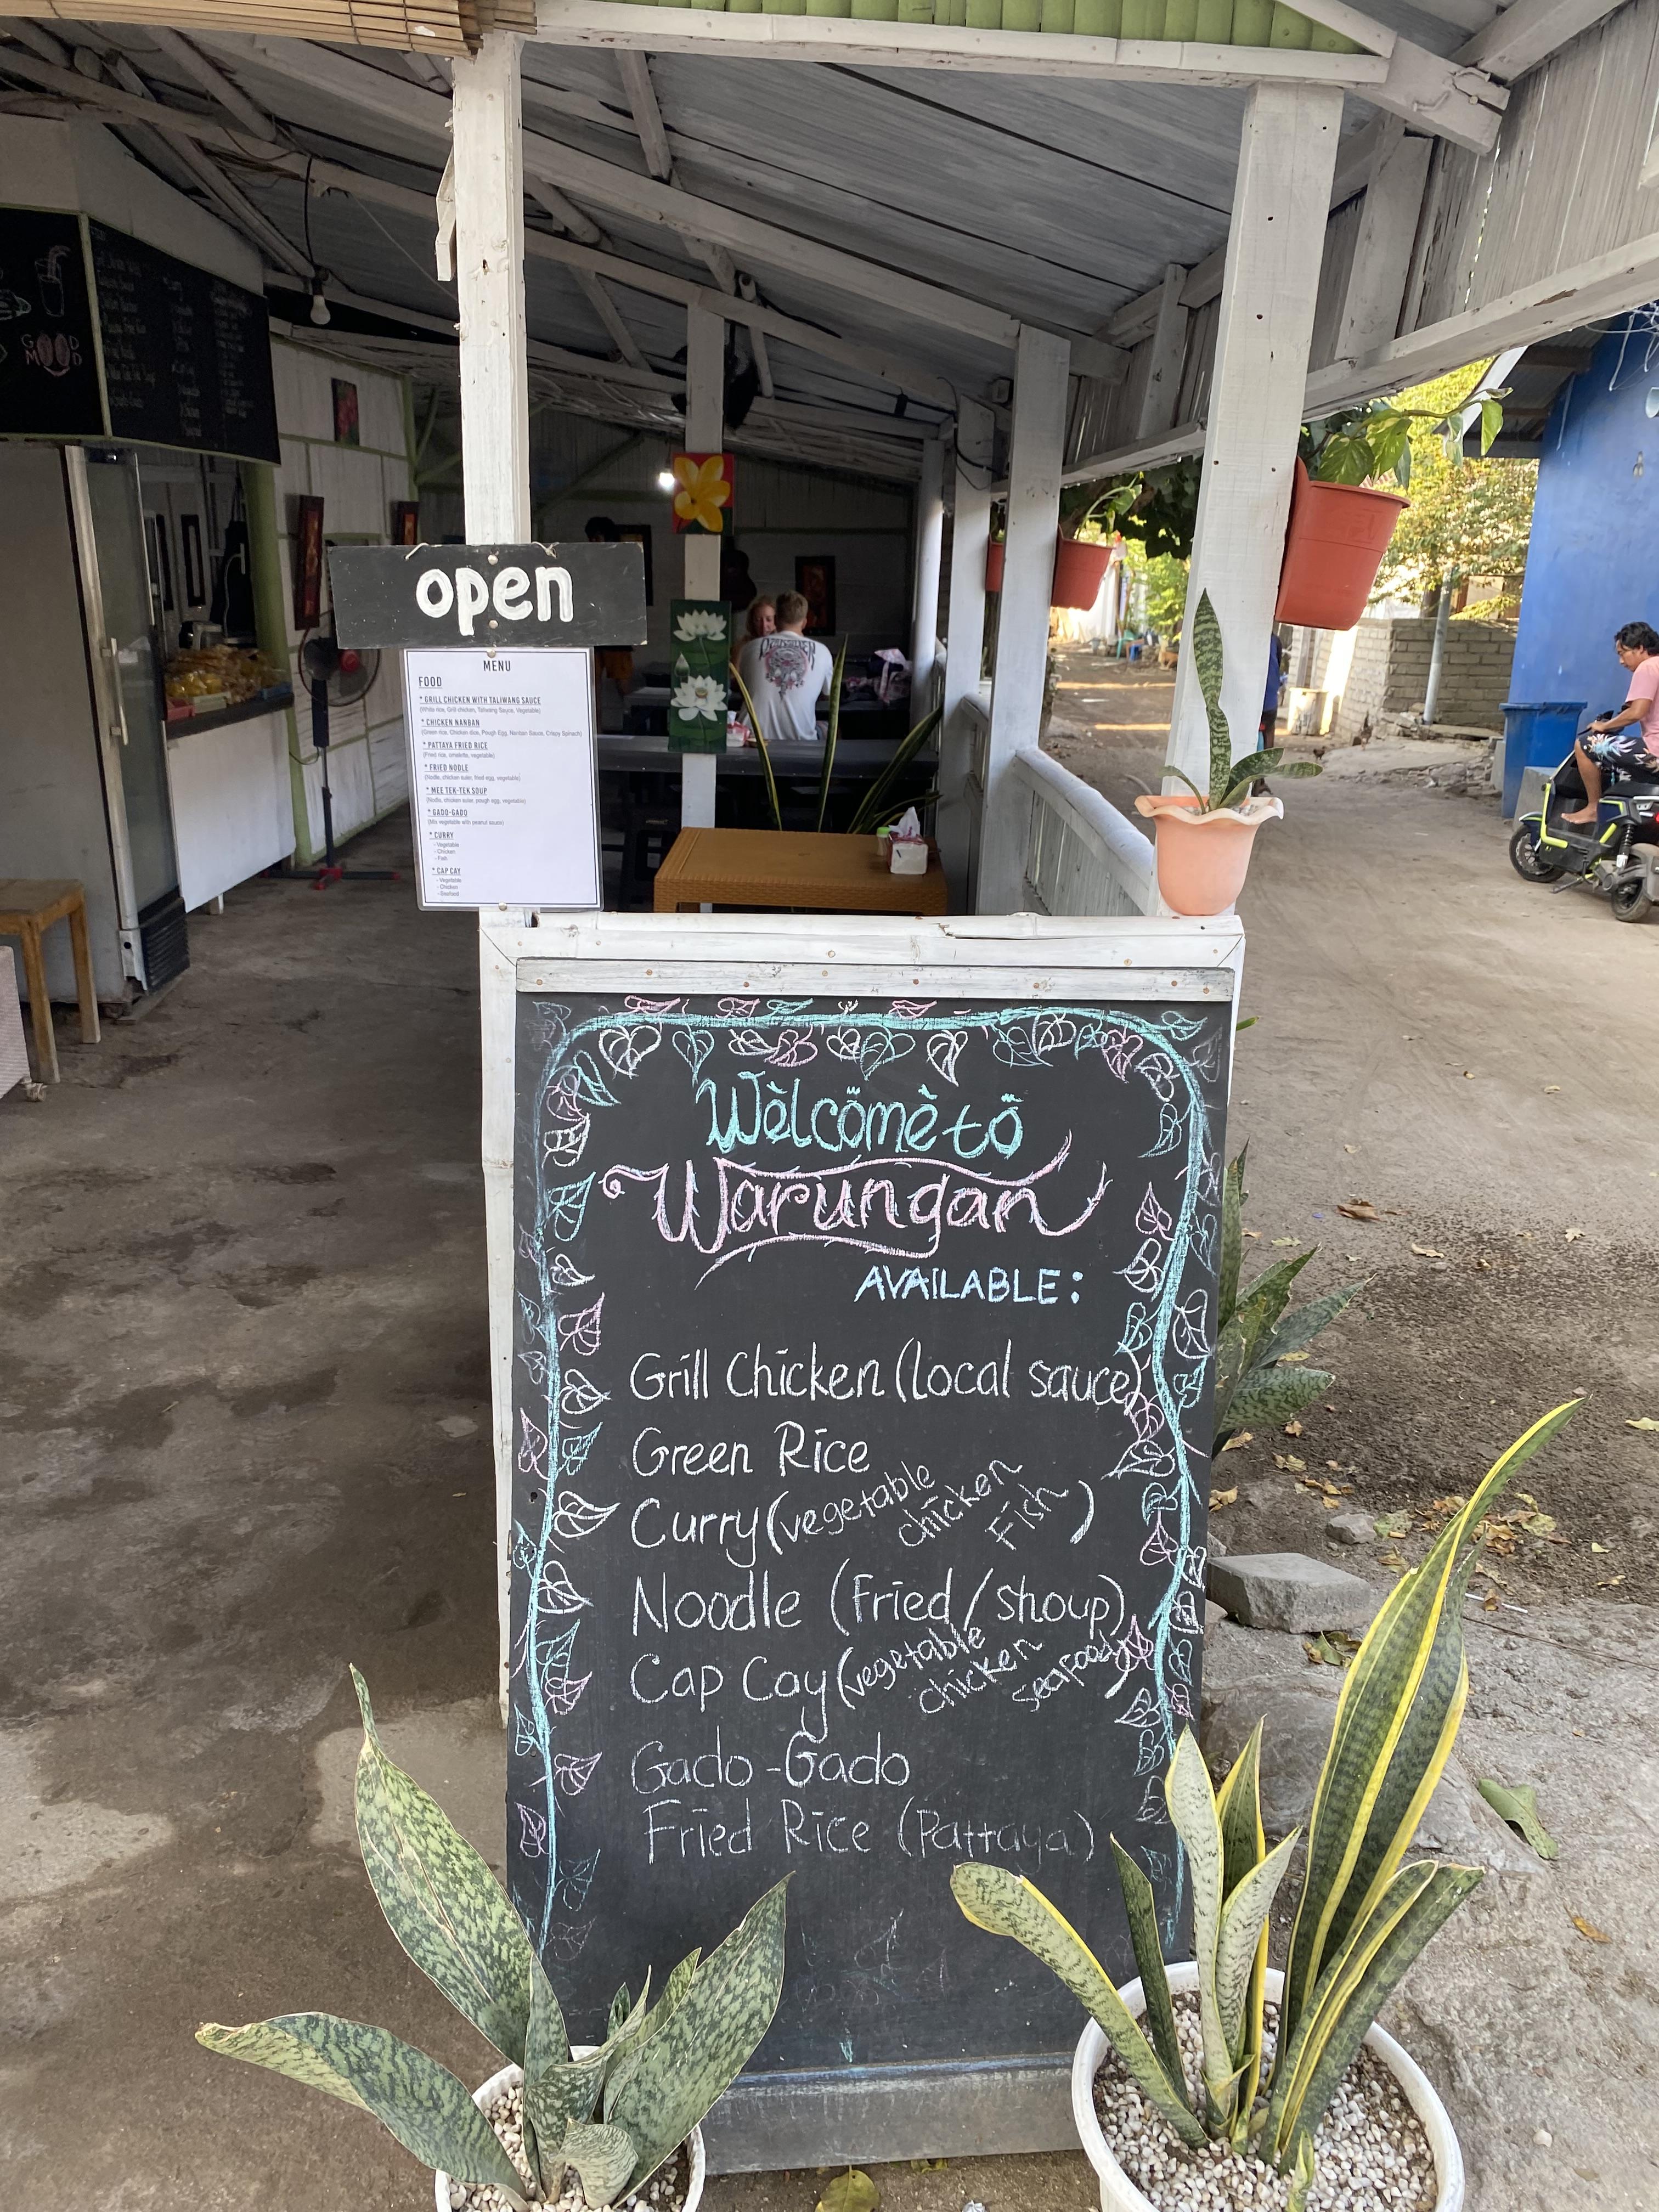 GOOD
MOOD
open
MENU
FOOD
* GRILL CHICKEN WITH TALIWANG SAUCE
(White rice, Grill chicken, Taliwang Sauce, Vegetable)
* CHICKEN NANBAN
(Green rice, Chicken slice, Pough Egg, Nanban Sauce, Crispy Spinach)
* PATTAYA FRIED RICE
(Fried rice, omelette, vegetable)
* FRIED NOODLE
(Nodle, chicken suier, fried egg, vegetable)
* MEE TEK-TEK SOUP
(Nodle, chicken suier, pough egg, vegetable)
* GADO-GADO
(Mix vegetable with peanut sauce)
* CURRY
- Vegetable
- Chicken
- Fish
* CAP CAY
- Vegetable
- Chicken
- Seafood
Wèlcömè tö
Warungan
AVAILABLE:
Grill Chicken (local sauce)
Green Rice
Curry (vegetable chicken Fish)
Noodle (Fried / shoup)
Cap Cay (vegetable chicken seafood)
Gado-Gado
Fried Rice (Pattaya)